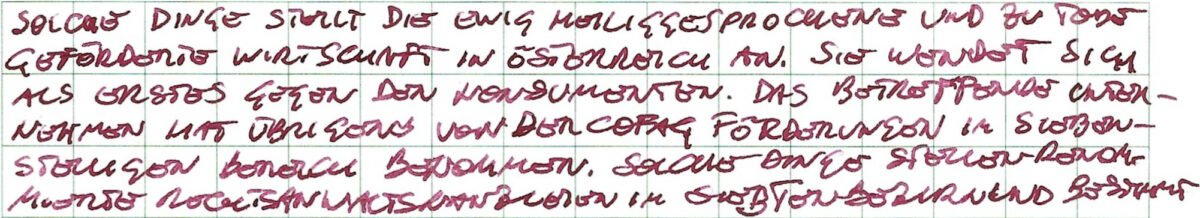 SOLCHE DINGE STELLT DIE EWIG HEILIGGESPROCHENE UND ZU TODE
GEFÖRDERTE WIRTSCHAFT IN ÖSTERREICH AN. SIE WENDET SICH
ALS ERSTES GEGEN DEN KONSUMENTEN. DAS BETREFFENDE UNTER-
NEHMEN HAT ÜBRIGENS VON DER COFAG FÖRDERUNGEN IM SIEBEN-
STELLIGEN BEREICH BEKOMMEN. SOLCHE DINGE STELLEN RENOM-
MIERTE RECHTSANWALTSKANZLEIEN IM